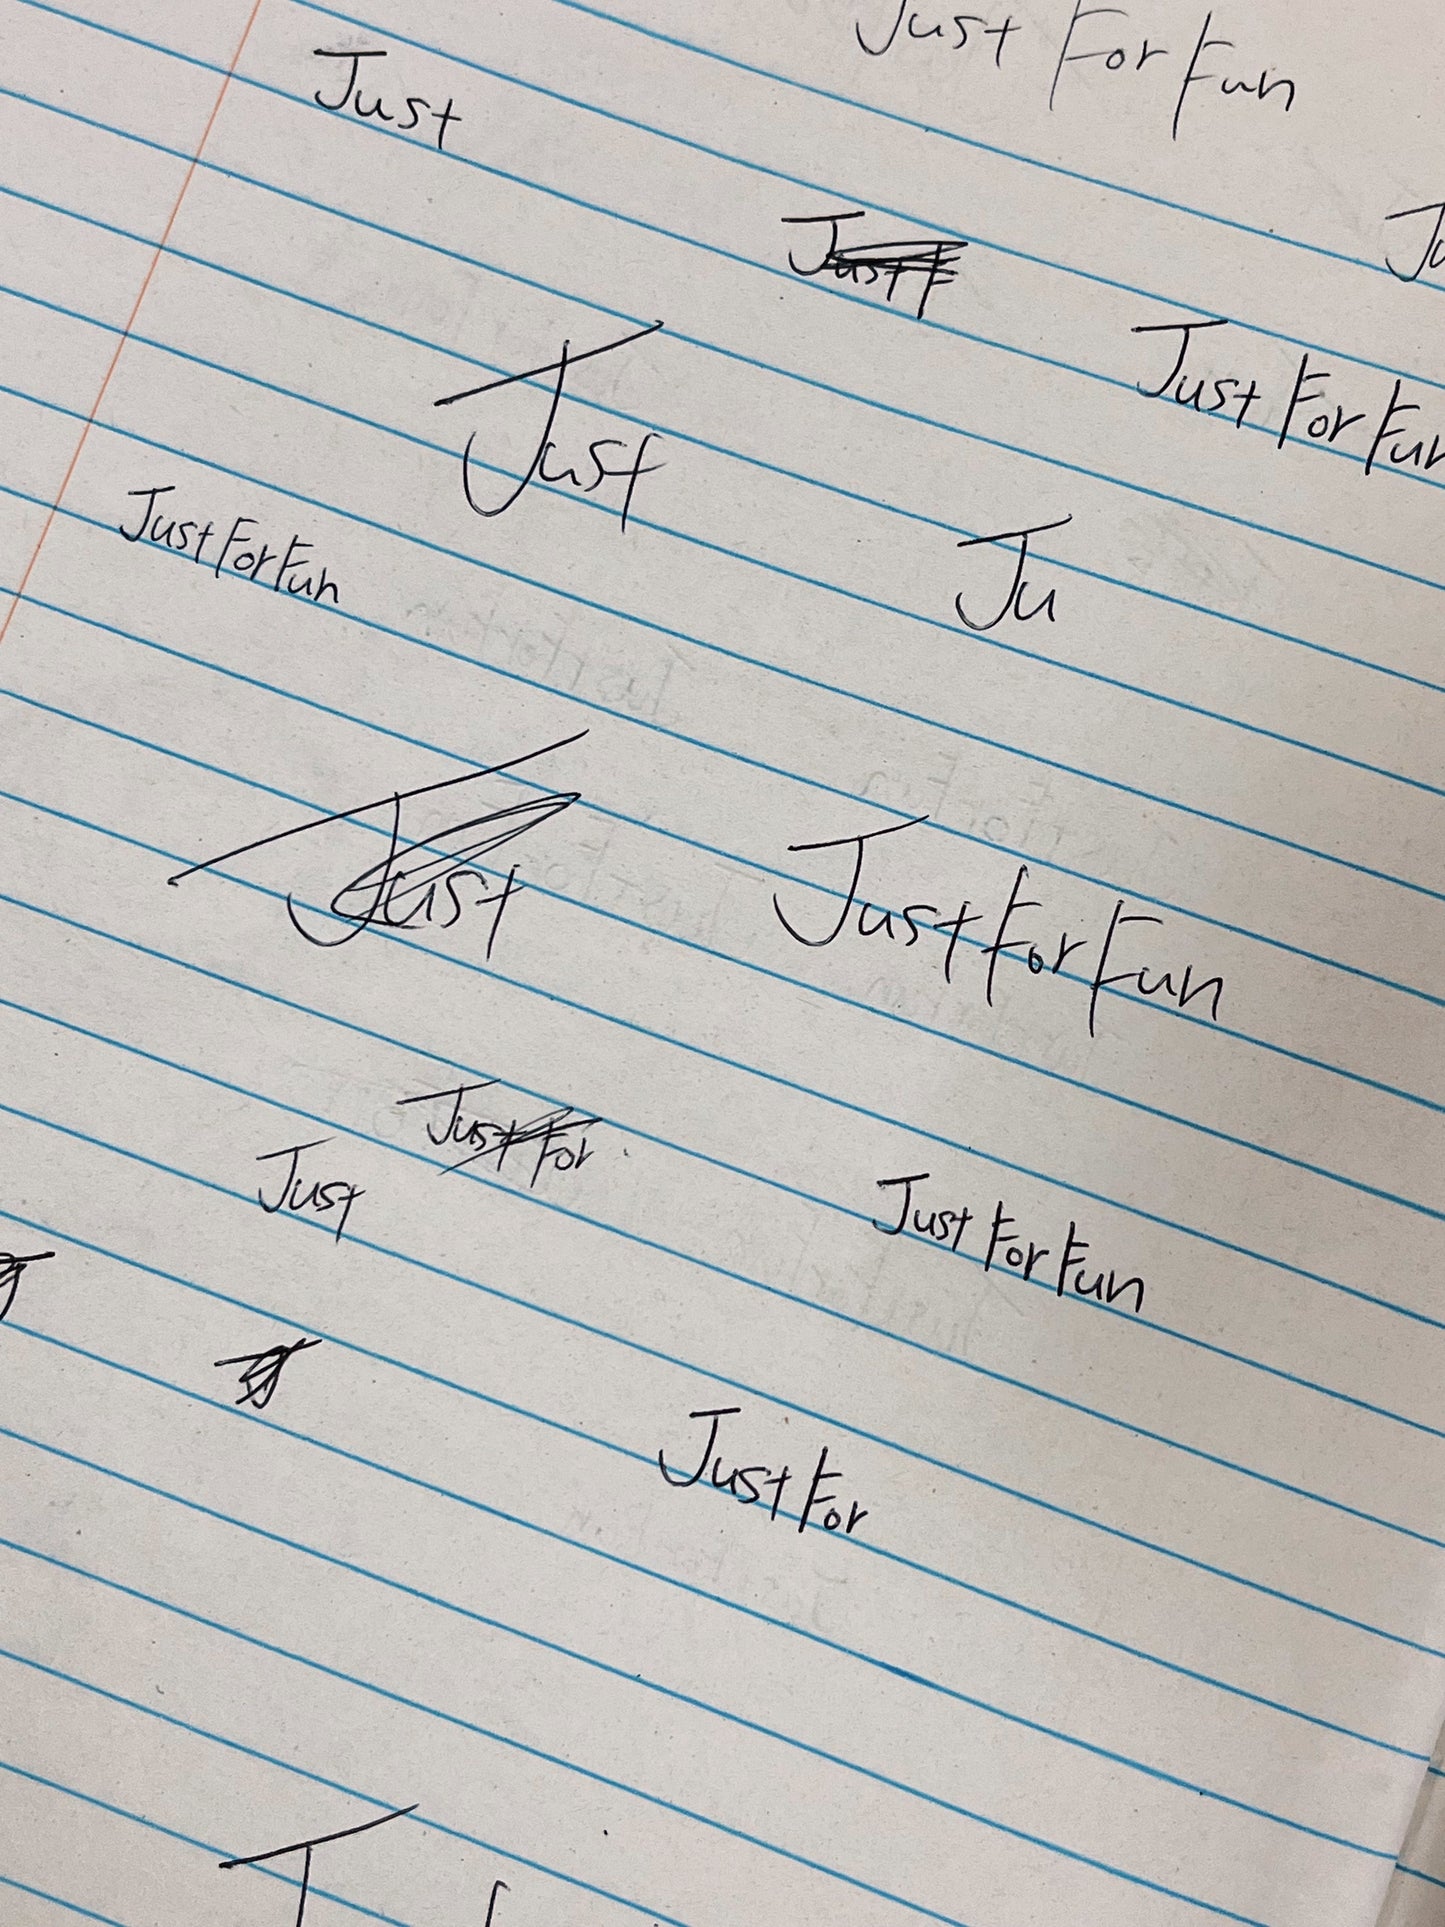 Just For Fun
Just
Just F
Ju
Just For Fun
Just
Just For Fun
Ju
Just
Just For Fun
Just For
Just
Just For Fun
Just For